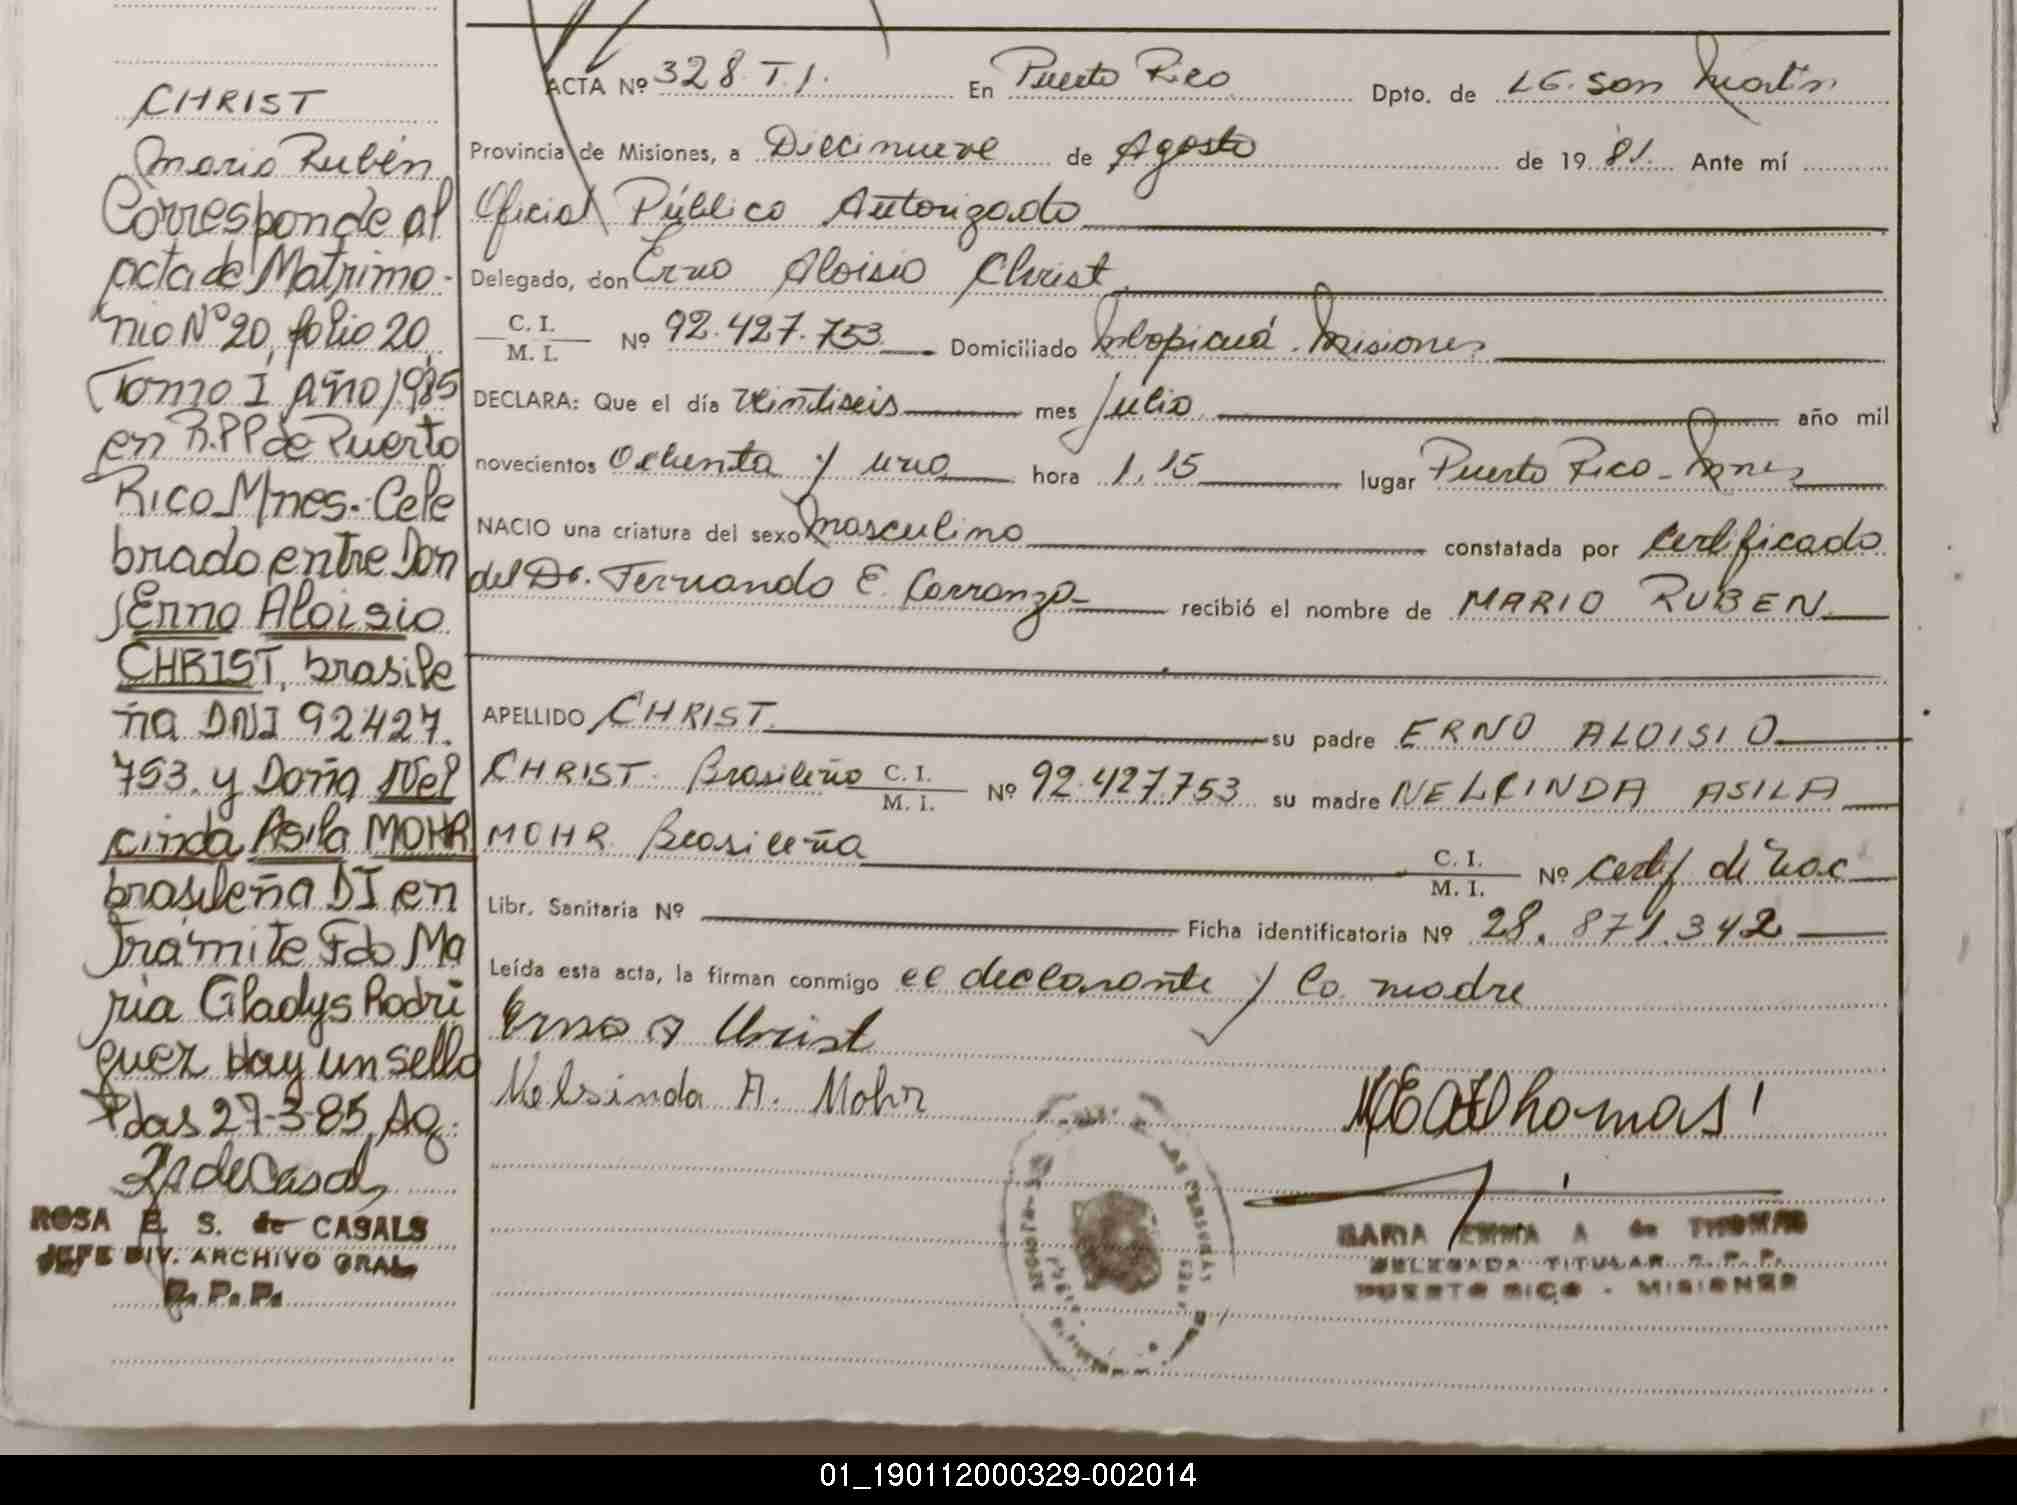 CHRIST
Mario Rubén
Corresponde al
acta de Matrimo-
nio Nº 20, folio 20,
Tomo I Año 1985
en R.P.P de Puerto
Rico Mnes.- Cele
brado entre Don
Erno Aloisio
CHRIST, brasile
ña DNI 92427.
753. y Doña Nel
cinda Asila MOHR
brasileña DI en
Trámite Fdo Ma
ria Gladys Rodri
guez Hay un sello
Pdas 27-3-85, Ag.
ROSA E. S. de CASALS
JEFE DIV. ARCHIVO GRAL.
R. P. P.
ACTA Nº 328. T.I. En Puerto Rico Dpto. de LG. San Martín
Provincia de Misiones, a Diecinueve de Agosto de 19 81. Ante mí
Oficial Público Autorizado
Delegado, don Erno Aloisio Christ
C. I.
M. I. Nº 92.427.753 Domiciliado Misiones
DECLARA: Que el día Veintiseis mes Julio año mil
novecientos Ochenta y uno hora 1,15 lugar Puerto Rico - Mnes
NACIO una criatura del sexo Masculino constatada por Certificado
del Dr. Fernando E. Carranza recibió el nombre de MARIO RUBEN
APELLIDO CHRIST su padre ERNO ALOISIO
CHRIST. Brasileño C. I. M. I. Nº 92.427.753 su madre NELCINDA ASILA
MOHR Brasileña C. I. M. I. Nº Certf de nac
Libr. Sanitaria Nº Ficha identificatoria Nº 28.871.342
Leída esta acta, la firman conmigo el declarante y la madre
Erno A Christ
Nelsinda A. Mohr
Thomas
MARIA EMMA A de THOMAS
DELEGADA TITULAR R. P. P.
PUERTO RICO - MISIONES
01_190112000329-002014